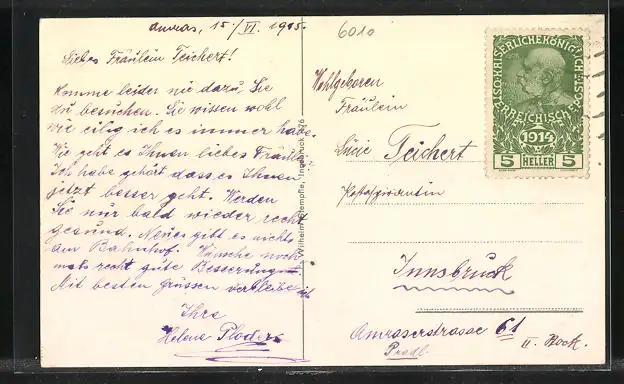 Amras, 15./VI. 1915.
6010
Liebes Fräulein Teichert!
Komme leider nie dazu, Sie
zu besuchen. Sie wissen wohl
wie eilig ich es immer habe.
Wie geht es Ihnen liebes Fräulein?
Ich habe gehört dass es Ihnen
jetzt besser geht. Werden
Sie nur bald wieder recht
gesund. Neues gibt es nichts
am Bahnhof. Wünsche noch
mals recht gute Besserung
Mit besten Grüssen verbleibe ich
Ihre
Helene Ploder
Wilhelm Stempfle, Innsbruck
Wohlgeboren
Fräulein
Lucie Teichert
Innsbruck
Amraserstrasse 61
Pradl.
II. Stock.
KAISERLICHE KÖNIGLICHE
ÖSTERREICHISCHE POST
1914
5 HELLER 5